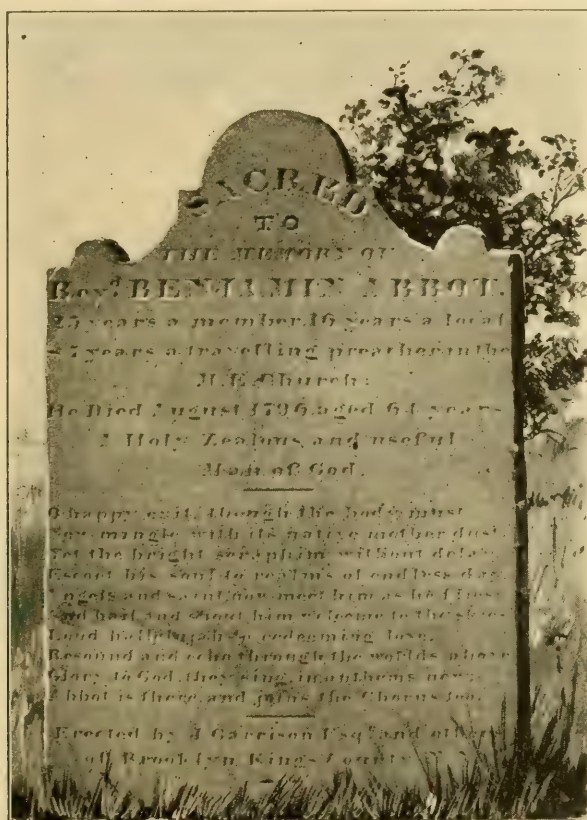 SACRED
TO
THE MEMORY OF
Revd. BENJAMIN ABBOT.
25 years a member, 16 years a local
& 7 years a travelling preacher in the
M.E. Church:
He Died August 1796, aged 64 years
A Holy Zealous and useful
Man of God.
O happy exit, though the body must
Now mingle with its native mother dust,
Yet the bright seraphim without delay
Escort his soul to realms of endless day
Angels and saints now meet him as he flies
And hail and shout him welcome to the skies
Loud hallelujah's redeeming love,
Resound and echo through the worlds above
Glory to God, they sing in anthems new
Abbot is there, and joins the Chorus too.
Erected by J Garrison Esqr. and others
of Brooklyn Kings County